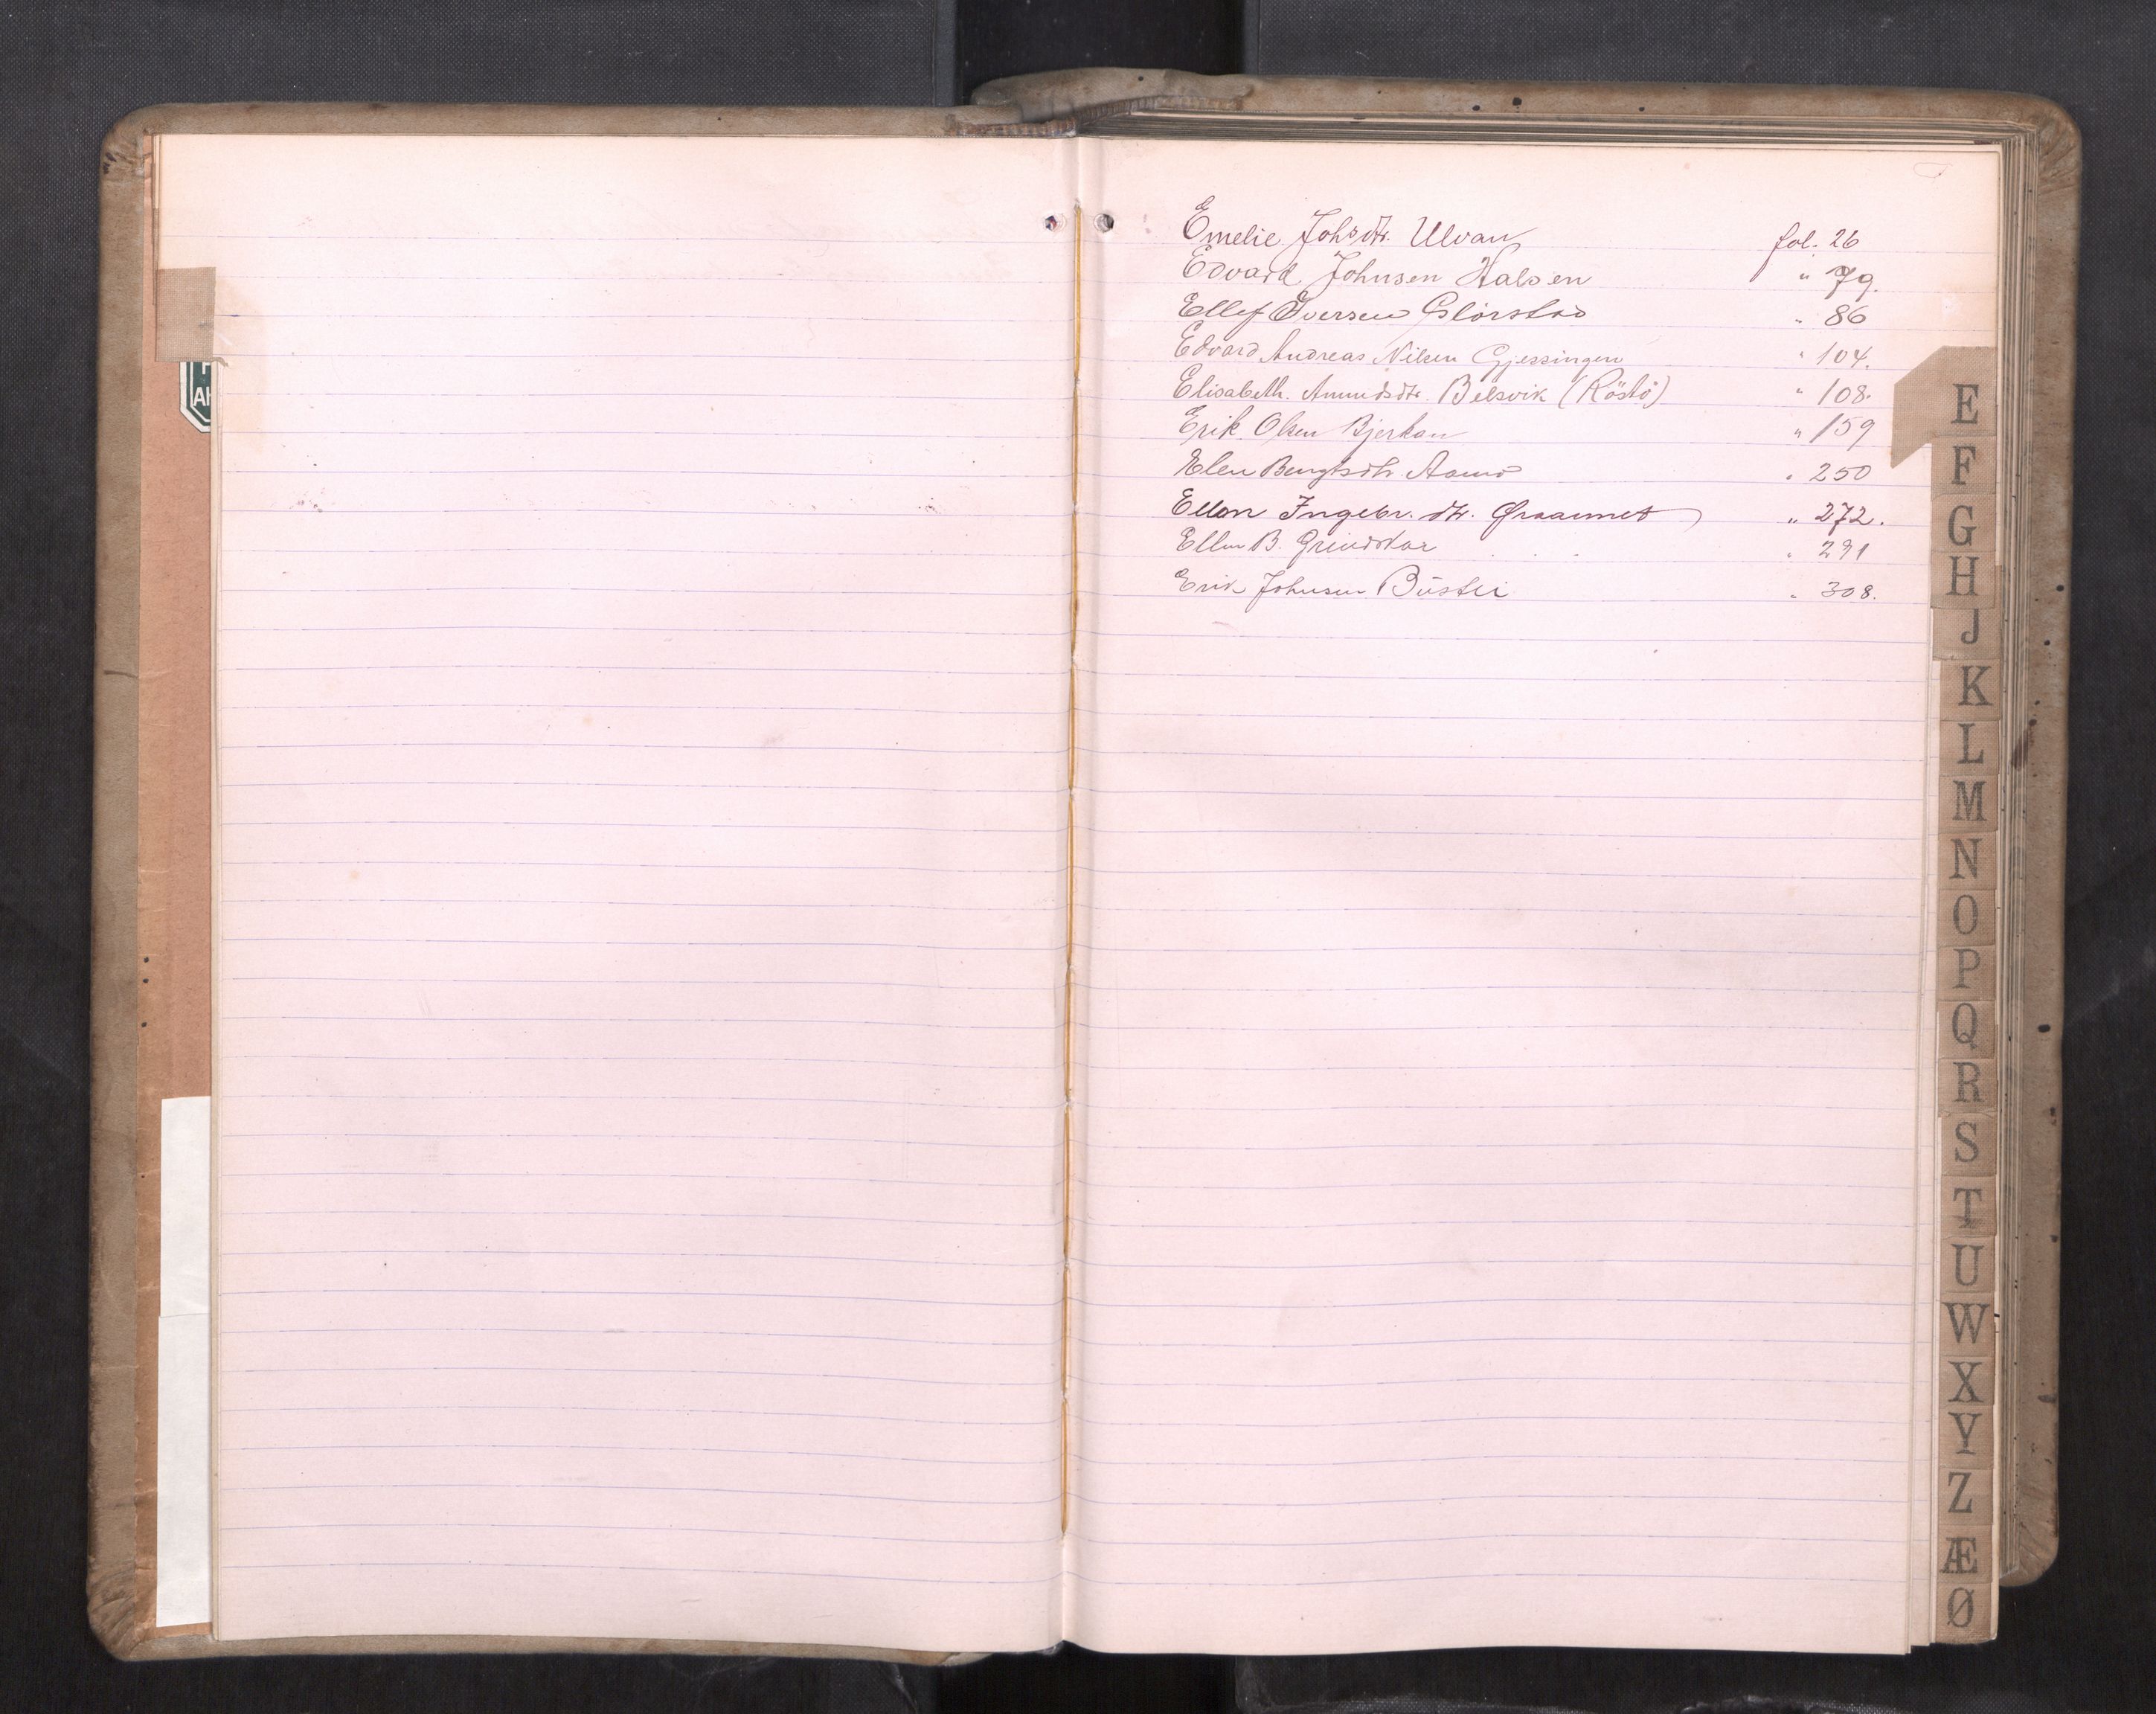 Emelie Johsdtr. Ulvan fol. 26
Edvard Johnsen Halsen " 79.
Ellef Iversen Glörstad " 86
Edvard Andreas Nilsen Gjessingen " 104.
Elisabeth Amundsdtr. Belsvik (Röstö) " 108.
Erik Olsen Bjerkan " 159
Elen Bengtsdtr. " 250
Ellen Ingebr. dtr. " 272.
Ellen B. Grindskar " 291
Erik Johnsen " 308.
E
F
G
H
J
K
L
M
N
O
P
Q
R
S
T
U
W
X
Y
Z
Æ
Ø